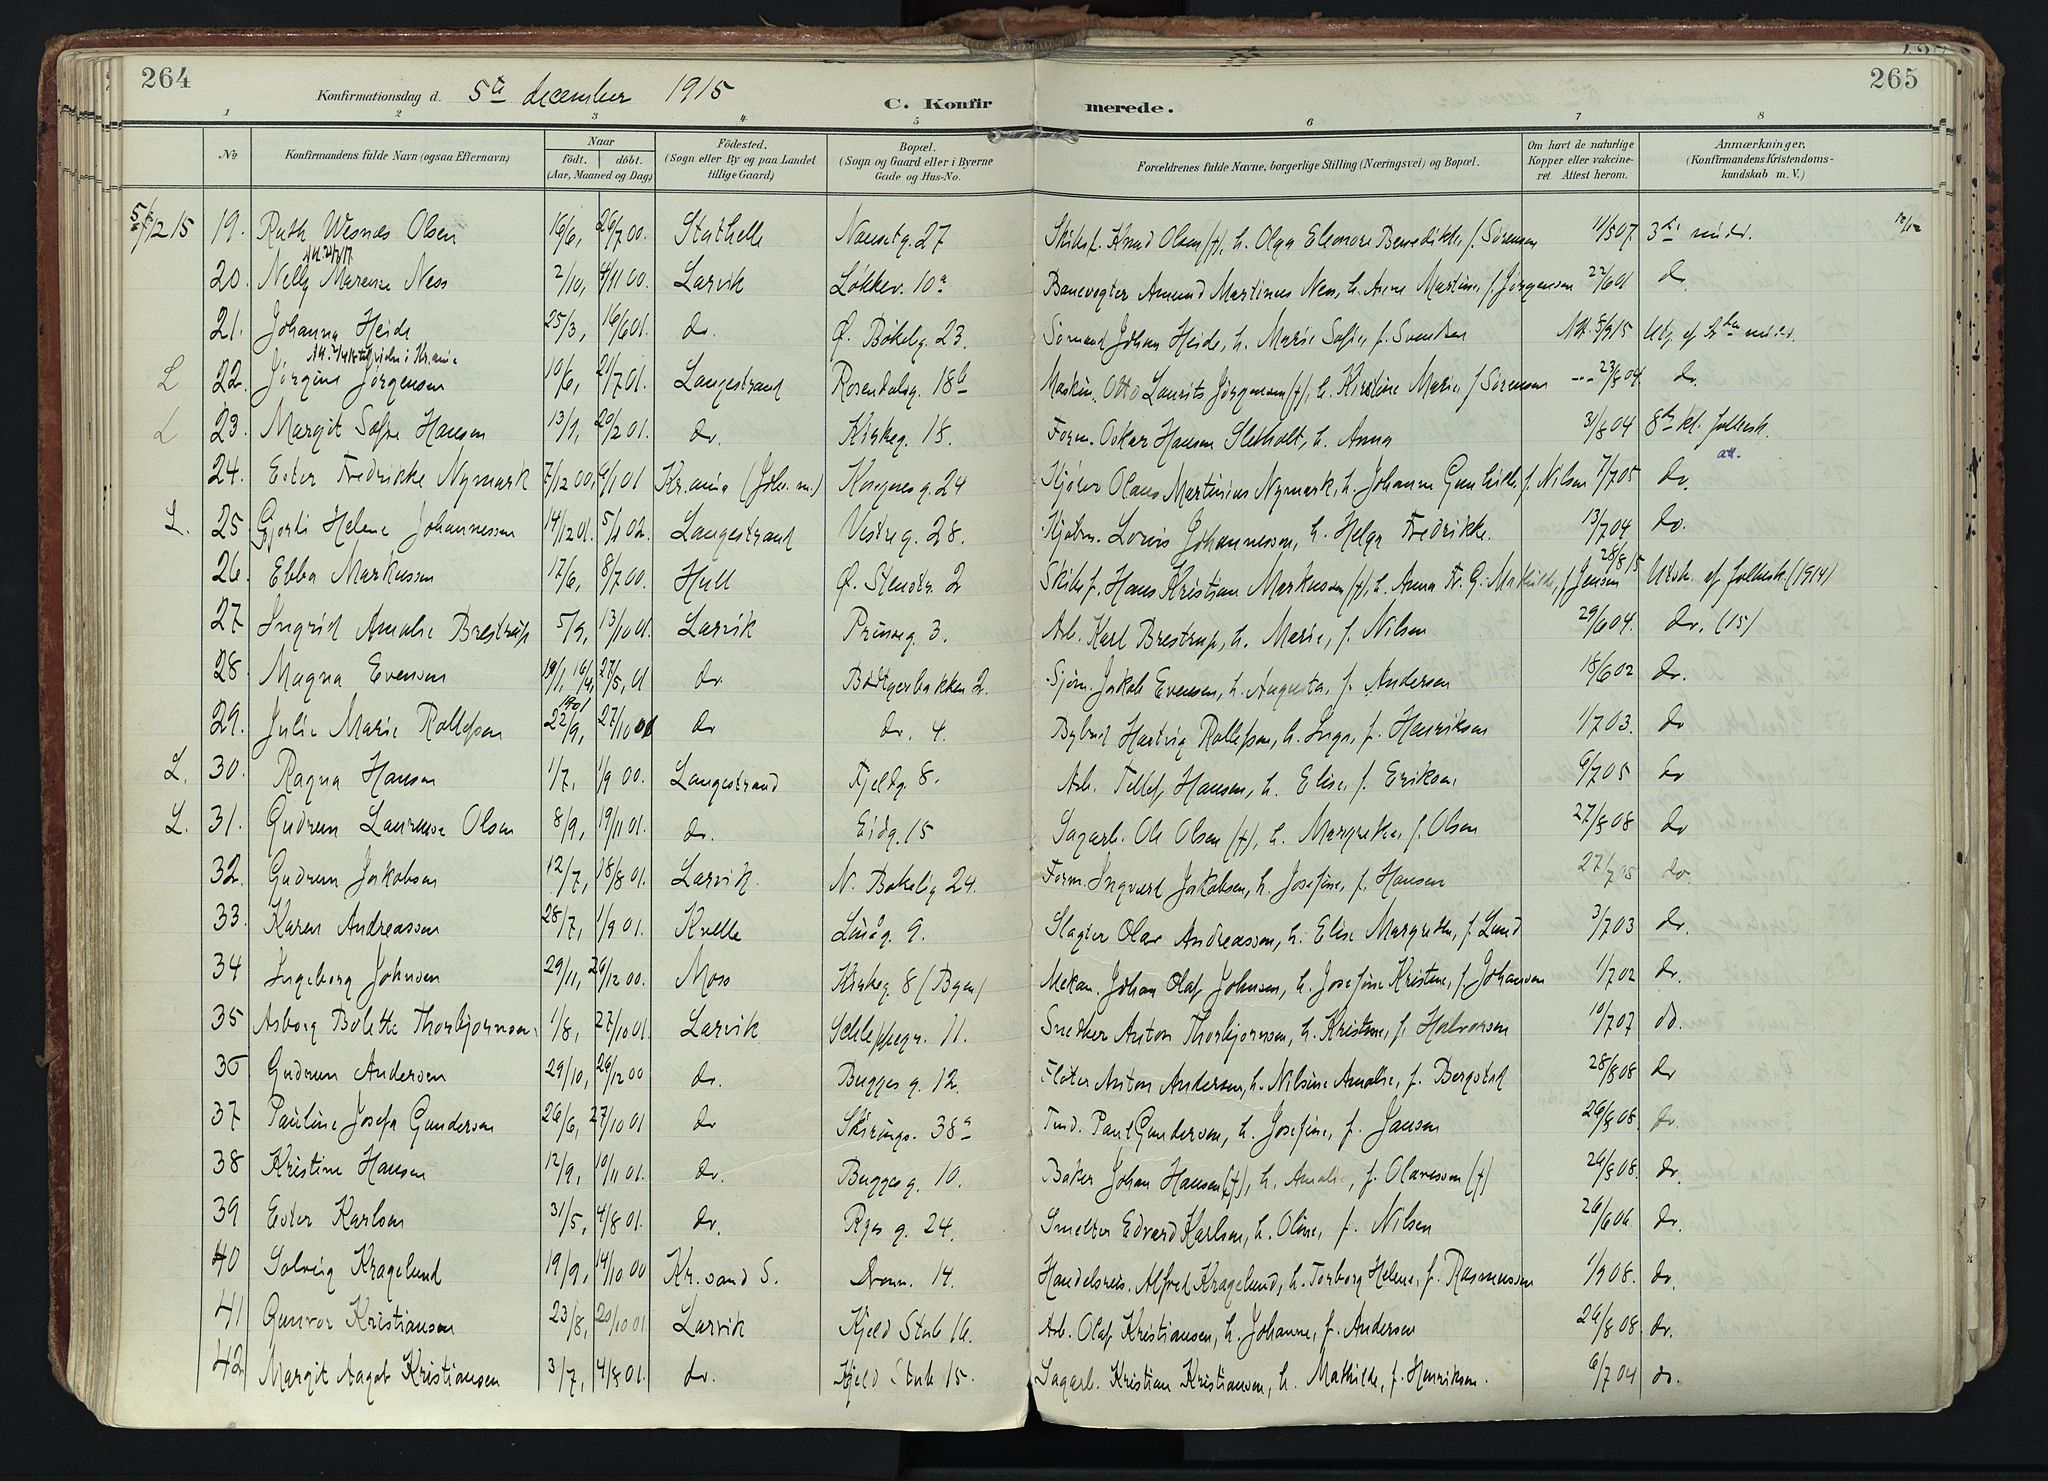 264
265
Konfirmationsdag d. 5te december 1915
C. Konfirmerede.
1 2 3 4 5 6 7 8
No Konfirmandens fulde Navn (ogsaa Efternavn) Naar født. døbt. (Aar, Maaned og Dag) Fødested. (Sogn eller By og paa Landet tillige Gaard) Bopæl. (Sogn og Gaard eller i Byerne Gade og Hus-No. Forældrenes fulde Navne, borgerlige Stilling (Næringsvei) og Bopæl. Om havt de naturlige Kopper eller vakcineret Attest herom. Anmærkninger. (Konfirmandens Kristendomskundskab m. V.)
5/12 15 19. Ruth Wesnes Olsen 16/6, 26/7 00. Stathelle Nansetg. 27 Skibsf. Knud Olsen (†), h. Olga Eleonore Benedikte, f. Sørensen 11/5 07.
20. Nelly Marense Ness 2/10, 4/11 00. Larvik Løkkev. 10a Banevogter Amund Martinus Ness, h. Anne Martine, f. Jørgensen 22/6 01 do.
21. Johanna Heide 25/3, 16/6 01. do. Ø. Bøkelig. 23. Sømand Johan Heide, h. Marie Sofie, f. Svendsen Att. 5/9 15
L 22. Jørgine Jørgensen 10/6, 21/7 01. Langestrand Rosendalsg. 18b Maskin. Otto Laurits Jørgensen (†), h. Kirstine Marie, f. Sørensen 23/8 04 do.
L 23. Margit Sofie Hansen 13/1, 20/2 01. do. Kirkeg. 18. Form. Oskar Hansen Sletholt, h. Anna 31/8 04 8de kl. folkesk.
24. Ester Fredrikke Nymark 7/12 00, 6/1 01 Kr.ania (Joh. m.) 24 Kjører Olaus Martinius Nymark, h. Johanne Gunhilde f. Nilsen 7/7 05 do.
L. 25 Gjerti Helene Johannessen 14/12 01. 5/1 02. Langestrand Vestreg. 28. Kjøbm. Louis Johannessen, h. Helga Fredrikke. 13/7 04 do.
26. Ebba Markussen 17/6, 8/7 00. Hull Ø. Stenstr. 2 Skibsf. Hans Kristian Markussen (†), h. Anna Fr. G. Mathilde, f. Jensen 28/8 15 Utsk. af folkesk. (1914)
27 Ingrid Amalie Brestrup 5/9, 13/10 01. Larvik Prinseg. 3. Arb. Karl Brestrup, h. Marie, f. Nilsen 29/6 04. do. (15)
28 Magna Evensen 19/1, 27/5, 01 do. Bødtgerbakken 2. Sjøm. Jakob Evensen, h. Augusta, f. Andersen 18/6 02 do.
29. Julie Marie Rollefsen 22/9, 27/10 01 do do. 4. Bybud Hartvig Rollefsen, h. Inga, f. Henriksen 1/7 03. do
L. 30. Ragna Hansen 1/7, 1/9 00. Langestrand Fjeldg. 8. Arb. Tellef Hansen, h. Elise, f. Eriksen, 6/7 05 do
L. 31. Gudrun Laurense Olsen 8/9, 19/11 01. do. Eidg. 15 Sagarb. Ole Olsen (†), h. Margrethe, f. Olsen 27/8 08 do
32. Gudrun Jakobsen 12/7, 18/8 01. Larvik. N. Bøkelig 24. Form. Ingvard Jakobsen, h. Josefine, f. Hansen 27/7 05 do.
33. Karen Andreassen 28/7, 1/9 01. Kvelle Lindg. 9. Slagter Olav Andreassen, h. Elise Margrethe, f. Lund 3/7 03 do.
34 Ingeborg Johnsen 29/11, 26/12 00. Moss Kirkeg. 8 (Byen) Mekan. Johan Olaf Johnsen, h. Josefine Kristine, f. Johansen 1/7 02 do.
35 Asborg Bolette Thorbjørnsen. 1/8, 27/10 01. Larvik Schleppegr. 11. Snedker Anton Thorbjørnsen, h. Kristine, f. Halvorsen 10/7 07 do.
36 Gudrun Andersen 29/10, 26/12 00 do. Bugges g. 12. Fløter Anton Andersen, h. Nilsine Amalie, f. Bergsted 28/8 08 do
37 Pauline Josefa Gundersen 26/6, 27/10 01 do Skirings. 38a Tind. Paul Gundersen, h. Josefine, f. Jansen 26/8 08. do.
38 Kristine Hansen 12/9, 10/11 01. do. Bugges g. 10. Baker Johan Hansen (†), h. Amalie, f. Olavessen (†) 26/8 08. do.
39 Ester Karlsen 31/5, 4/8 01. do. Ryes g. 24. Smelter Edvard Karlsen, h. Oline, f. Nilsen 26/6 06 do.
40 Solveig Kragelund 19/9, 14/10 00 Kr.sand S. Dronn. 14. Handelsreis. Alfred Kragelund, h. Torborg Helene, f. Rasmussen 1/9 08. do.
41 Gunvor Kristiansen 23/8, 20/10 01 Larvik Kjeld Stub 16. Arb. Olaf Kristiansen, h. Johanne, f. Andersen 26/8 08. do.
42 Margit Aagot Kristiansen 3/7, 4/8 01. do. Kjeld Stub 15. Sagarb. Kristian Kristiansen, h. Mathilde, f. Henriksen. 6/7 04 do.